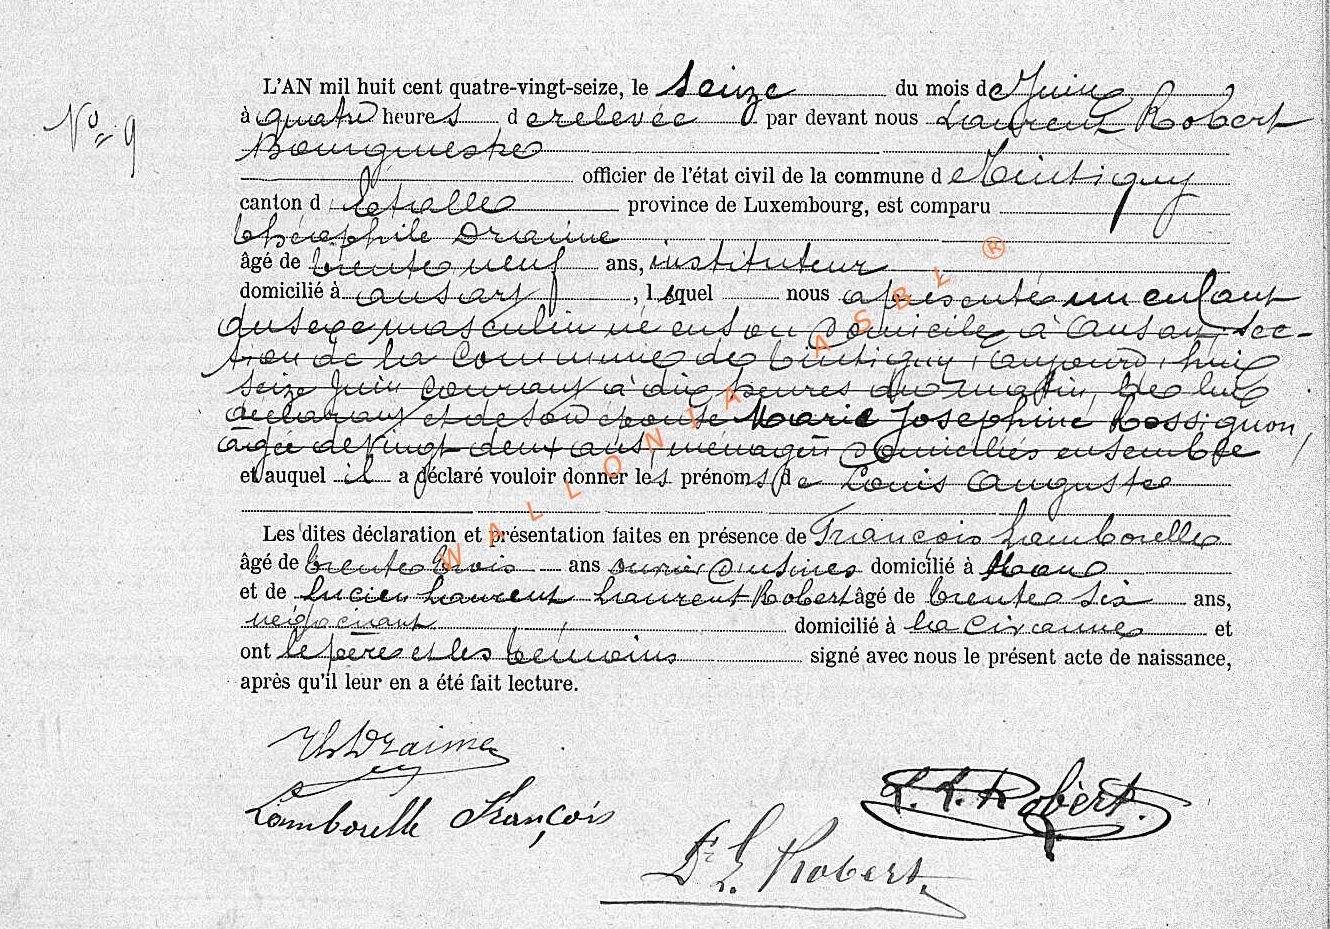 L'AN mil huit cent quatre-vingt-seize, le seize du mois de Juin
No 9
à quatre heures de relevée par devant nous Laurent Robert
Bourgmestre
officier de l'état civil de la commune de Tintigny
canton d'Etalle province de Luxembourg, est comparu
Théophile Draime
âgé de trente neuf ans, instituteur
domicilié à ansart, lequel nous a présenté un enfant
du sexe masculin né en son domicile à ansart, sec-
tion de la commune de tintigny, aujourd'hui
seize Juin courant à dix heures du matin, de lui
déclarant et de son épouse Marie Josephine Rossignon,
agée de vingt deux ans, ménagère domiciliés ensemble
et auquel il a déclaré vouloir donner les prénoms de Louis Auguste
Les dites déclaration et présentation faites en présence de François Lamborelle
âgé de trente trois ans ouvrier d'usines domicilié à
et de Lucien Laurent Laurent Robert âgé de trente six ans,
négociant domicilié à et
ont le père et les témoins signé avec nous le présent acte de naissance,
après qu'il leur en a été fait lecture.
Th Draime
Lamborelle François
L. L. Robert.
L. Robert.
WALLONIA ASBL ®